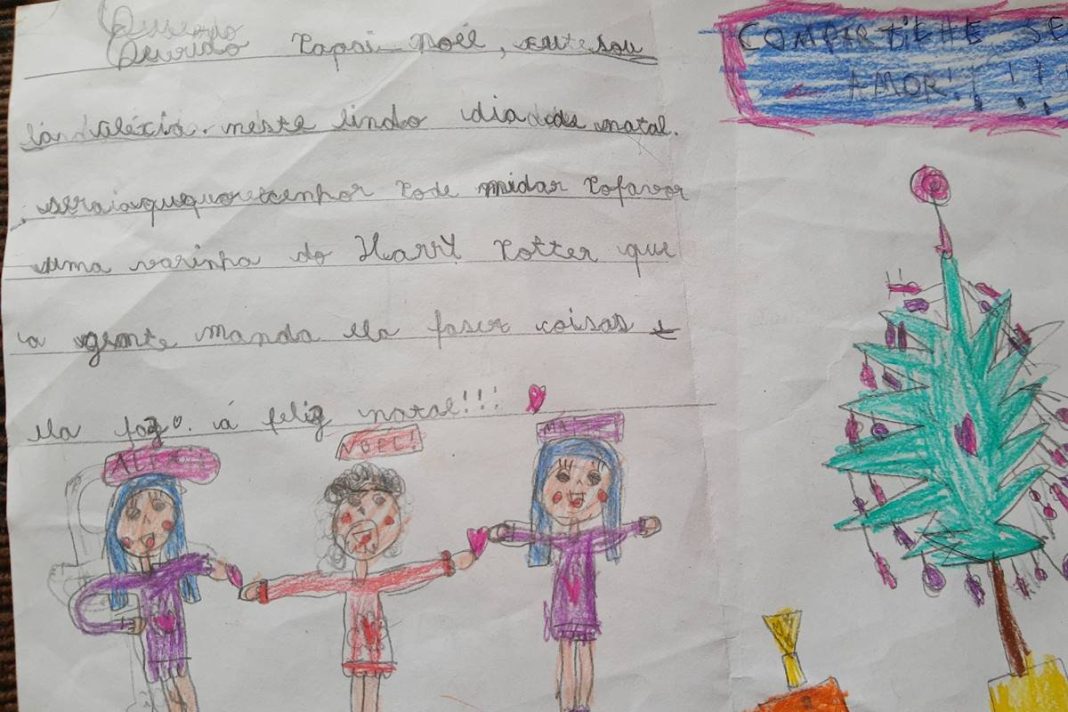 Querido Papai Noel, eu sou
Aléxia. neste lindo dia de natal.
senhor Pode mi dar Pofavor
uma varinha do Harry Potter que
a gente manda ela faser coisas e
ela faz. á feliz natal!!!
COMPARTILHE SE
AMOR!!!!
NOEL!